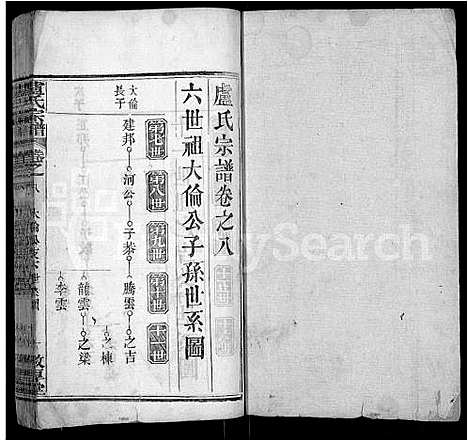 盧氏宗譜卷之八
六世祖大倫公子孫世系圖
第七世 第八世 第九世 第十世 十一世
大倫長子
建邦 河公 子泰 騰雲 之吉
之棟
龍雲 之梁
李雲
盧氏宗譜 卷之八
敦厚堂
MySearch